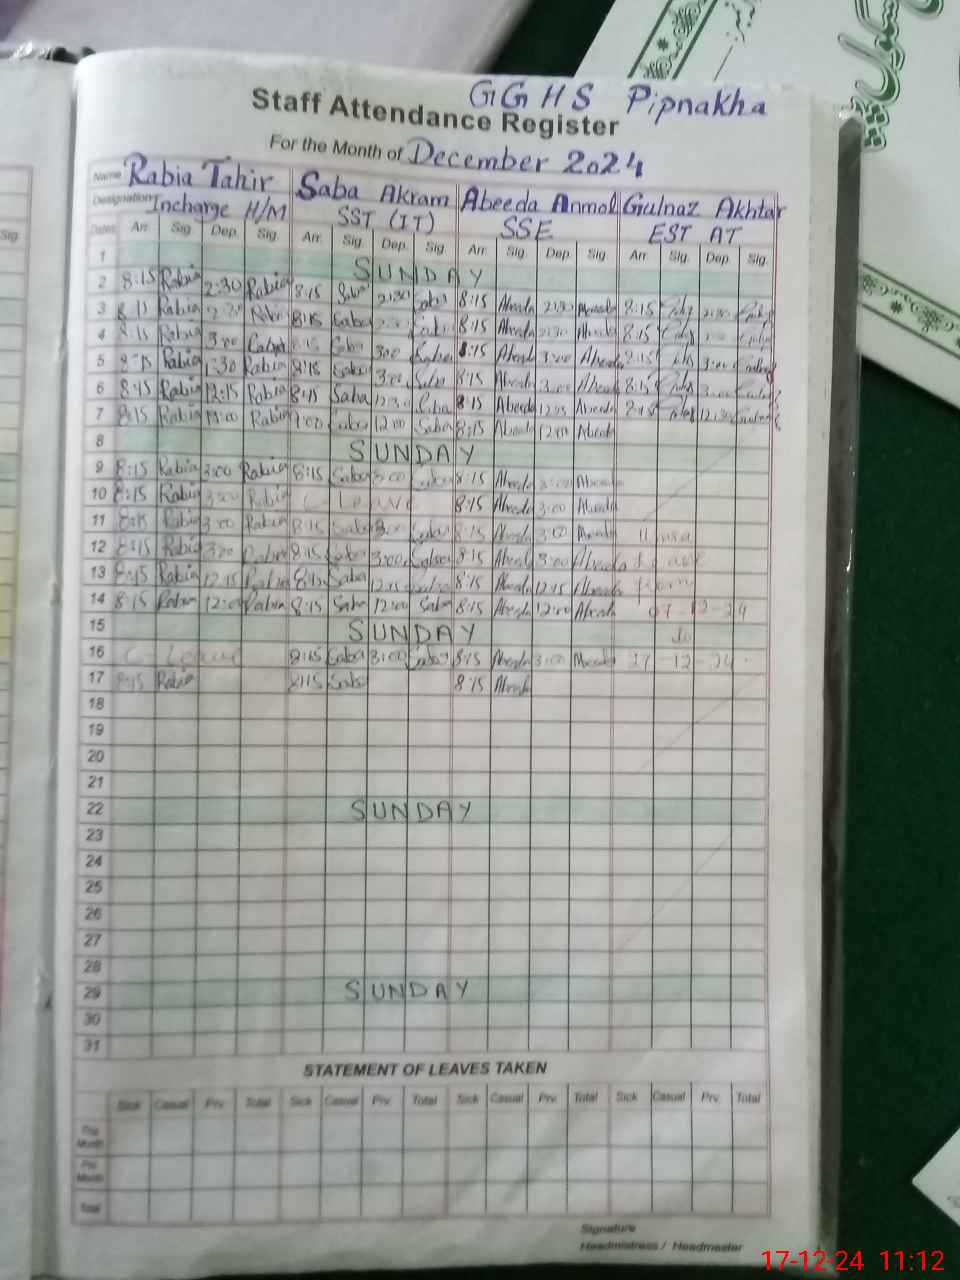 GGHS Pipnakha
Staff Attendance Register
For the Month of December 2024
Name Rabia Tahir Saba Akram Abeeda Anmol Gulnaz Akhtar
Designation Incharge H/M SST (IT) SSE EST AT
Dates Arr. Sig. Dep. Sig. Arr. Sig. Dep. Sig. Arr. Sig. Dep. Sig. Arr. Sig. Dep. Sig.
1 SUNDAY
2 8:15 Rabia 2:30 Rabia 8:15 Saba 2:30 Saba 8:15 Abeeda 2:30 Abeeda 8:15
3 8:15 Rabia 8:15 Saba 8:15 Abeeda 2:30 Abeeda 8:15
4 8:15 Rabia 3:00 Saba 3:00 8:15 Abeeda 3:00 Abeeda 8:15 3:00
5 Rabia 1:30 Rabia 8:15 Saba 3:00 Saba 8:15 Abeeda 3:00 Abeeda 8:15
6 8:15 Rabia 12:15 Rabia 8:15 Saba 12:30 Saba 8:15 Abeeda 12:15 Abeeda 8:15 12:30
7 8:15 Rabia Rabia Saba 12:00 Saba 8:15 Abeeda 12:00 Abeeda
8 SUNDAY
9 8:15 Rabia 3:00 Rabia 8:15 Saba 3:00 Saba 8:15 Abeeda Abeeda
10 8:15 Rabia 3:00 Rabia C-Leave 8:15 Abeeda 3:00 Abeeda
11 8:15 Rabia 3:00 Rabia 8:15 Saba 3:00 Saba 8:15 Abeeda 3:00 Abeeda
12 8:15 Rabia 3:00 Rabia 8:15 Saba 3:00 Saba 8:15 Abeeda 3:00 Abeeda
13 8:15 Rabia 12:15 Rabia 8:15 Saba 12:15 Saba 8:15 Abeeda 12:15 Abeeda from
14 8:15 Rabia 12:00 Rabia 8:15 Saba 12:00 Saba 8:15 Abeeda 12:00 Abeeda 07-12-24
15 SUNDAY to
16 C-Leave 8:15 Saba 3:00 Saba 8:15 Abeeda 3:00 Abeeda 27-12-24
17 8:15 Rabia 8:15 Saba 8:15 Abeeda
18
19
20
21
22 SUNDAY
23
24
25
26
27
28
29 SUNDAY
30
31
STATEMENT OF LEAVES TAKEN
Sick Casual Prv. Total Sick Casual Prv. Total Sick Casual Prv. Total Sick Casual Prv. Total
Month
Month
Total
Signature
Headmistress / Headmaster
17-12-24 11:12
Sig.